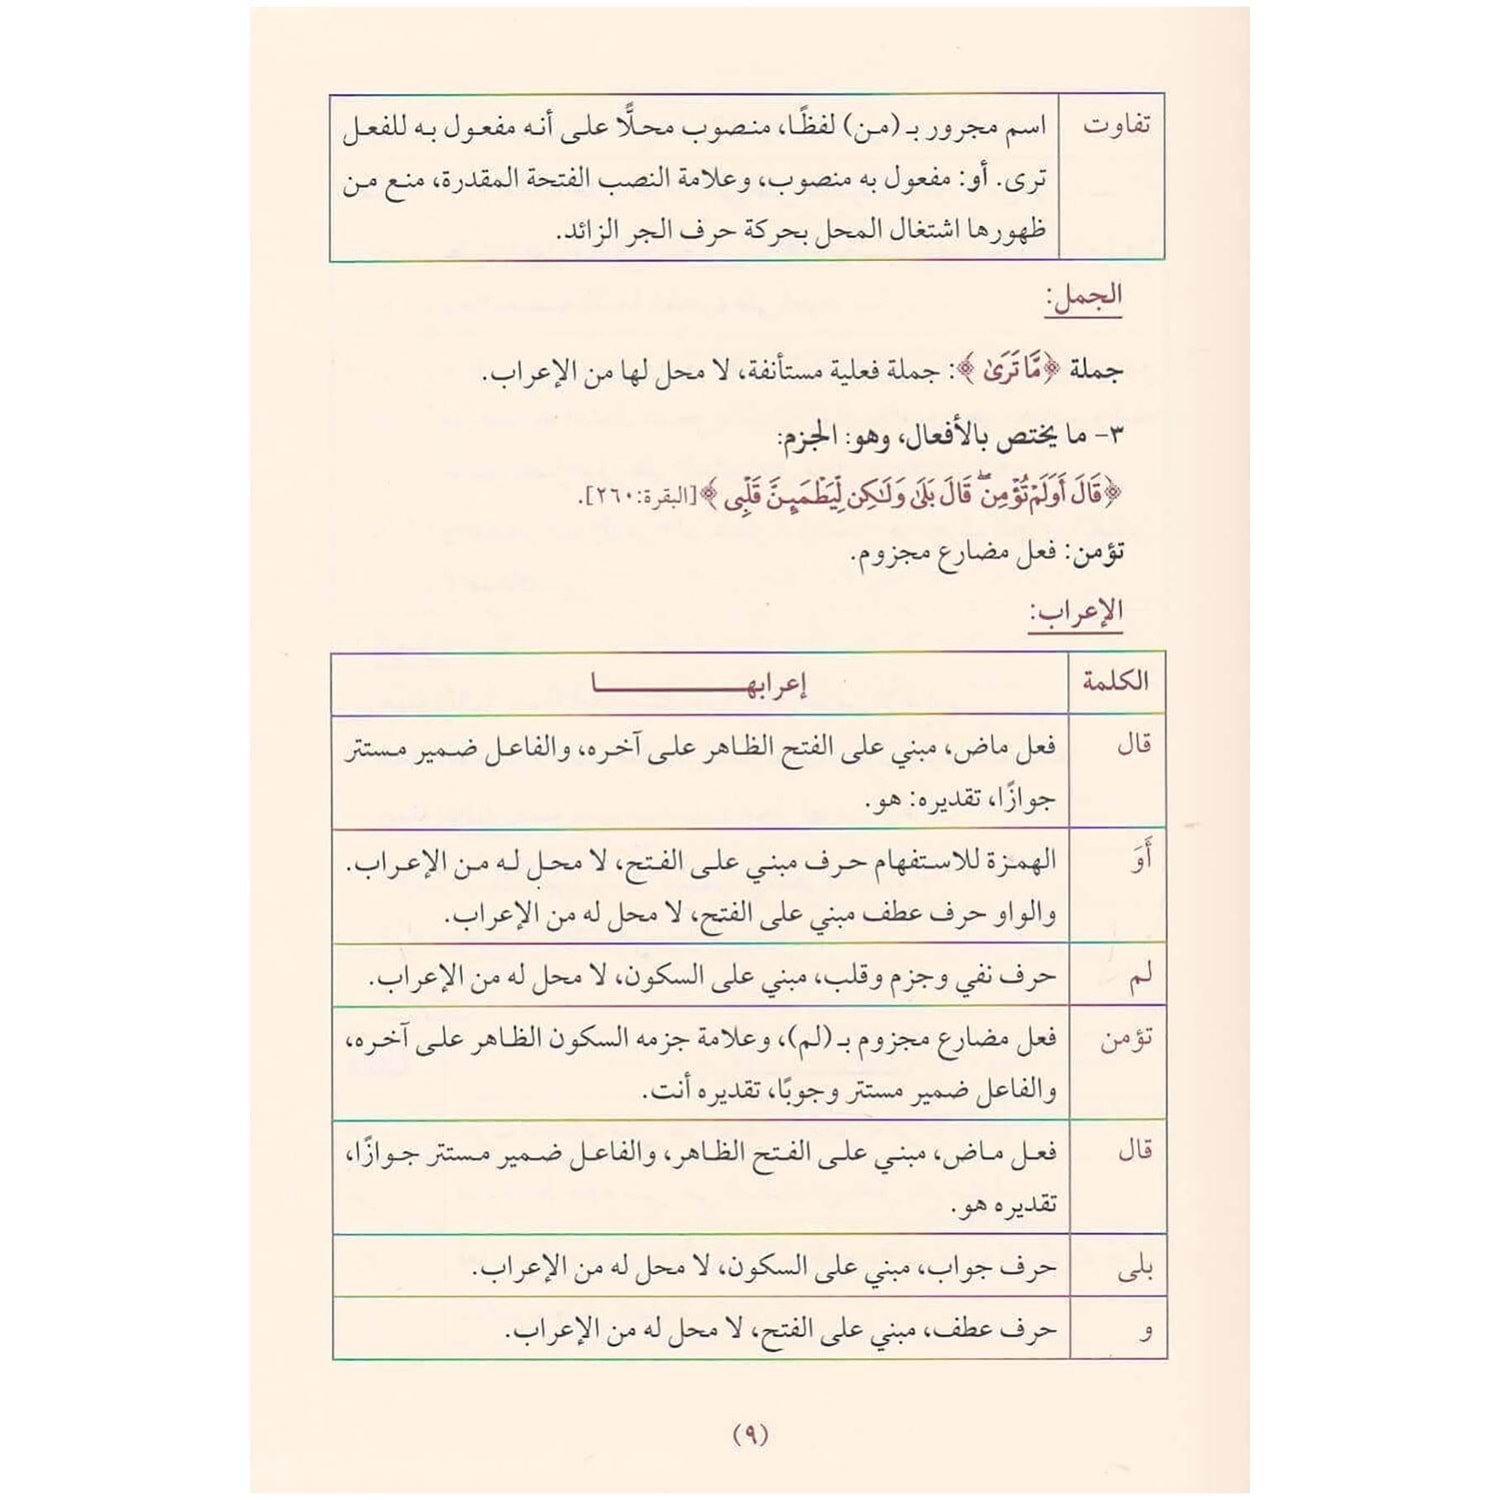 تفاوت
اسم مجرور بـ (من) لفظًا، منصوب محلًّا على أنه مفعول به للفعل
ترى. أو: مفعول به منصوب، وعلامة النصب الفتحة المقدرة، منع من
ظهورها اشتغال المحل بحركة حرف الجر الزائد.
الجمل:
جملة ﴿مَّا تَرَىٰ﴾: جملة فعلية مستأنفة، لا محل لها من الإعراب.
٣- ما يختص بالأفعال، وهو: الجزم:
﴿قَالَ أَوَلَمْ تُؤْمِن ۖ قَالَ بَلَىٰ وَلَـٰكِن لِّيَطْمَئِنَّ قَلْبِى﴾ [البقرة: ٢٦٠].
تؤمن: فعل مضارع مجزوم.
الإعراب:
الكلمة إعرابهـــــــا
قال
فعل ماض، مبني على الفتح الظاهر على آخره، والفاعل ضمير مستتر
جوازًا، تقديره: هو.
أَوَ
الهمزة للاستفهام حرف مبني على الفتح، لا محل له من الإعراب.
والواو حرف عطف مبني على الفتح، لا محل له من الإعراب.
لم
حرف نفي وجزم وقلب، مبني على السكون، لا محل له من الإعراب.
تؤمن
فعل مضارع مجزوم بـ (لم)، وعلامة جزمه السكون الظاهر على آخره،
والفاعل ضمير مستتر وجوبًا، تقديره أنت.
قال
فعل ماض، مبني على الفتح الظاهر، والفاعل ضمير مستتر جوازًا،
تقديره هو.
بلى
حرف جواب، مبني على السكون، لا محل له من الإعراب.
و
حرف عطف، مبني على الفتح، لا محل له من الإعراب.
(٩)